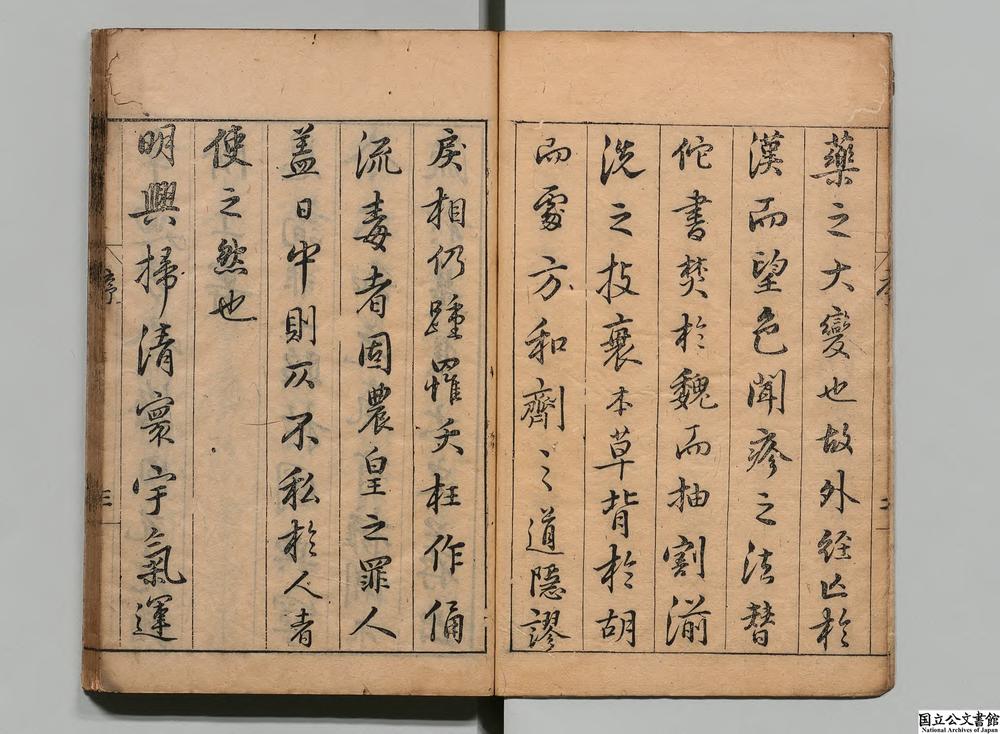 藥之大變也故外經亡於
漢而望色聞疹之法替
佗書焚於魏而抽割湔
洗之技衰本草背於胡
而處方和劑〻道隱謬
戾相仍踵罹夭枉作俑
流毒者固農皇之罪人
盖日中則仄不私於人者
使之然也
明興掃清寰宇氣運
序
三
国立公文書館
National Archives of Japan